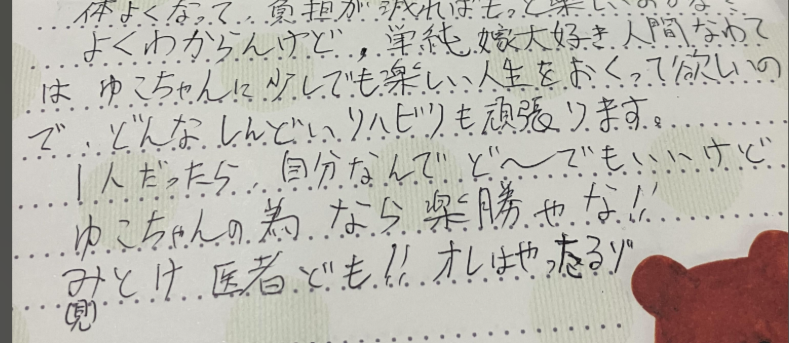 体よくなって、負担が減ればもっと楽しいのかな?
よくわからんけど、単純嫁大好き人間なわて
は ゆこちゃんに少しでも楽しい人生をおくって欲しいの
で、どんなしんどいリハビリも頑張ります。
1人だったら、自分なんでど〜でもいいけど
ゆこちゃんの為なら楽勝やな!!
みとけ医者ども!! オレはやったるゾ
(見)